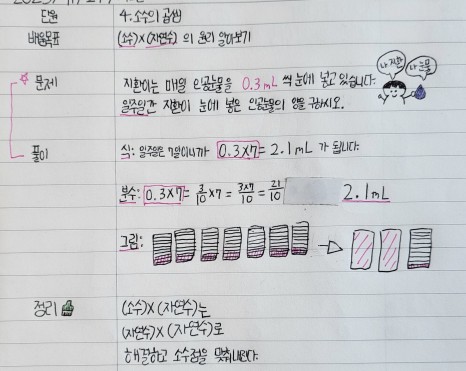 단원 4. 소수의 곱셈
배움목표 (소수)×(자연수) 의 원리 알아보기
문제 지환이는 매일 인공눈물을 0.3mL 씩 눈에 넣고 있습니다.
일주일간 지환이 눈에 넣은 인공눈물의 양을 구하시오.
나 지환
나 눈물
풀이 식: 일주일은 7일이니까 0.3×7 = 2.1mL 가 됩니다.
분수: 0.3×7 = 3/10 ×7 = 3×7/10 = 21/10 2.1mL
그림:
정리 (소수)×(자연수)는
(자연수)×(자연수)로
해결하고 소수점을 맞춰내린다.